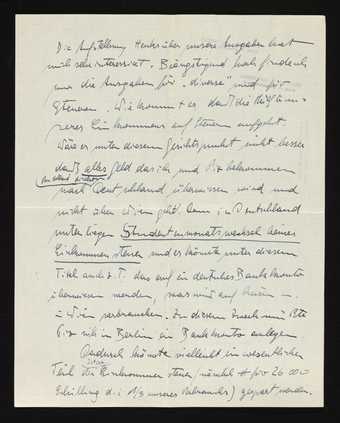 Die Aufstellung Henks über unsere Ausgaben hat
mich sehr interessiert. Beängstigend hoch finde ich
nur die Ausgaben für "diverse" und für
Steuern. Wie kommt es, daß die Hälfte un-
seres Einkommens auf Steuern aufgeht.
Wäre es unter diesem Gesichtspunkt nicht besser
daß alles Geld das ich und bekommen
nach Deutschland überwiesen wird und
nicht über Wien geht. Denn in Deutschland
unterliegen Studentenmonatswechsel keiner
Einkommensteuer und es könnte unter diesem
Titel auch z. T. das auf ein deutsches Bankkonto
überwiesen werden, was wir auf Reisen u.
in Wien verbrauchen. Zu diesem Zweck müßte
ich in Berlin ein Bankkonto anlegen.
Dadurch könnte vielleicht ein wesentlicher
Teil der Einkommensteuer (nämlich pro 26 000
Schilling d. i. 1/3 unseres Verbrauches) gespart werden.